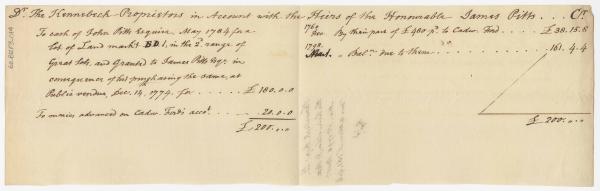 Dr. The Kennebeck Proprietors in Account with the Heirs of the Honourable James Pitts . . Cr.
To cash of John Pitts Esquire, May 1784 for a
Lot of Land markt. BD 1, in the 2d range of
Great Lots, and Granted to James Pitts Esqr. in
consequence of his purchasing the same, at
Public vendue, Decr. 14, 1774. for . . . . . . £180.0.0
To monies advanced on Cadwr. Ford's acct. . . . . 20.0.0
£200....
By their part of £480 pd. to Cadwr. Ford . . . . £38.15.8
Balce. due to them . . . . 161.4.4
£200....